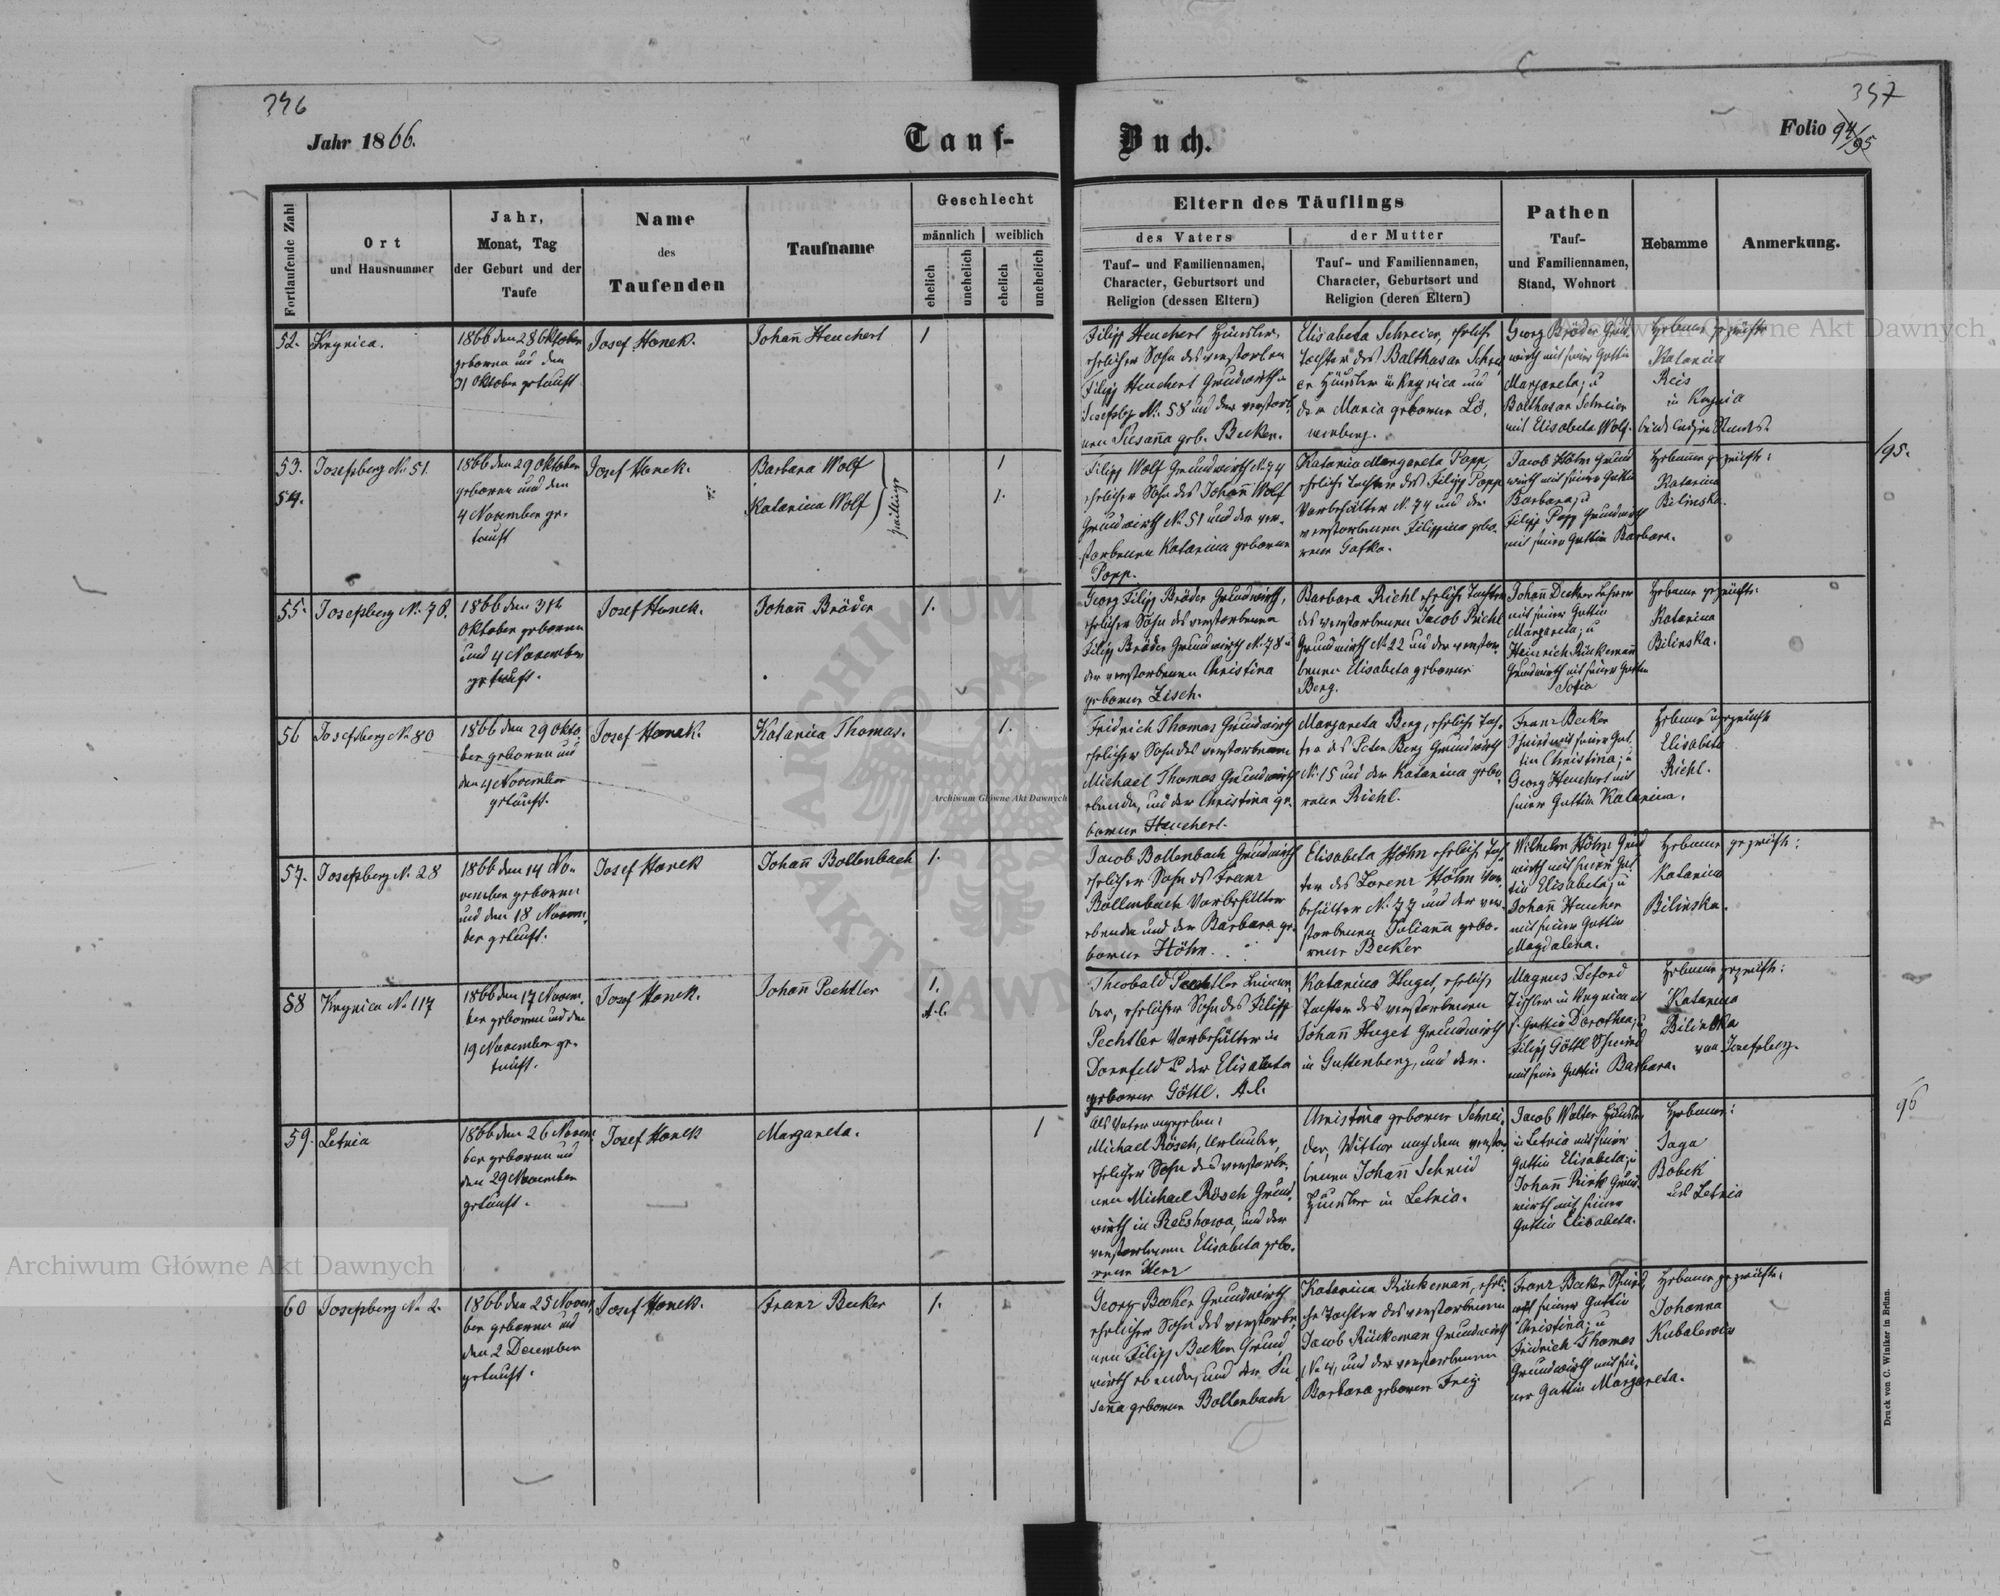 396
397
Jahr 1866.
Tauf-
Buch.
Folio 94/95
Fortlaufende Zahl
Ort
und Hausnummer
Jahr,
Monat, Tag
der Geburt und der
Taufe
Name
des
Taufenden
Taufname
Geschlecht
männlich
weiblich
ehelich
unehelich
ehelich
unehelich
Eltern des Täuflings
des Vaters
Tauf- und Familiennamen,
Character, Geburtsort und
Religion (dessen Eltern)
der Mutter
Tauf- und Familiennamen,
Character, Geburtsort und
Religion (deren Eltern)
Pathen
Tauf-
und Familiennamen,
Stand, Wohnort
Hebamme
Anmerkung.
52.
Krynica.
1866 den 28 Oktober
geboren und den
31 Oktober getauft
Josef Hanek.
Johann Heuchert
1
Filipp Heuchert Häusler,
ehelicher Sohn des verstorbenen
Filipp Heuchert Grundwirth in
Josefsbg N. 58 und der verstorbe,
nen Susanna geb. Becker.
Elisabeta Schreier, eheliche
Tochter des Balthasar Schrei,
er Häusler in Krynica und
der Maria geborene Lö,
wenberg.
Georg Bräder Grund,
wirth mit seiner Gattin
Margareta; u
Balthasar Schreier
mit Elisabeta Wolf.
Hebame geprüfte
Katarina
Reis
in Krynica
53.
54.
Josefsberg N. 51.
1866 den 29 Oktober
geboren und den
4 November ge-
tauft
Josef Hanek.
Barbara Wolf
Katarina Wolf
zwillinge
1
1.
Filipp Wolf Grundwirth N. 74
ehelicher Sohn des Johann Wolf
Grundwirth N. 51 und der ver-
storbenen Katarina geborene
Popp.
Katarina Margareta Popp,
eheliche Tochter des Filipp Popp
Vorbehälter N. 74 und der
verstorbenen Filippina gebo-
rene Gafko.
Jacob Höhn Grund
wirth mit seiner Gattin
Barbara; u
Filipp Popp Grundwirth
mit seiner Gattin Barbara.
Hebame geprüfte:
Katarina
Bilinska.
195.
55.
Josefsberg N. 78.
1866 den 31t
Oktober geboren
und 4 November
getauft.
Josef Hanek.
Johann Bräder
1.
Georg Filipp Bräder Grundwirth,
ehelicher Sohn des verstorbenen
Filipp Bräder Grundwirth N. 78 u
der verstorbenen Christina
geborene Zisch.
Barbara Riehl eheliche Tochter
des verstorbenen Jacob Riehl
Grundwirth N. 22 und der verstor,
benen Elisabeta geborene
Berg.
Johann Decker Lehrer
mit seiner Gattin
Margareta; u
Heinrich Rückemann
Grundwirth mit seiner Gattin
Sofia
Hebame geprüfte:
Katarina
Bilinska.
56
Josefsberg N. 80
1866 den 29 Okto,
ber geboren und
den 4 November
getauft.
Josef Hanek.
Katarina Thomas.
1.
Fridrich Thomas Grundwirth
ehelicher Sohn des verstorbenen
Michael Thomas Grundwirth
ebenda, und der Christina ge,
borene Heuchert.
Margareta Berg, eheliche Toch,
ter des Peter Berg Grundwirth
N. 15 und der Katarina gebo,
rene Riehl.
Franz Becker
Schmied mit seiner Gat,
tin Christina; u
Georg Heuchert mit
seiner Gattin Katarina.
Hebame ungeprüfte
Elisabeta
Riehl.
57.
Josefsberg N. 28
1866 den 14 No-
vember geboren
und den 18 Novem,
ber getauft.
Josef Hanek
Johann Bollenbach
1.
Jacob Bollenbach Grundwirth
ehelicher Sohn des Franz
Bollenbach Vorbehälter
ebenda und der Barbara ge,
borene Höhn.
Elisabeta Höhn eheliche Toch,
ter des Lorenz Höhn Vor,
behälter N. 77 und der ver,
storbenen Juliana gebo,
rene Becker
Wilhelm Höhn Grund
wirth mit seiner Gat,
tin Elisabeta; u
Johann Heucher
mit seiner Gattin
Magdalena.
Hebame geprüfte:
Katarina
Bilinska.
58
Krynica N. 117
1866 den 17 Novem,
ber geboren und den
19 November ge-
tauft.
Josef Hanek.
Johann Pechtler
1.
A.C.
Theobald Pechtler Leinwe,
ber, ehelicher Sohn des Filipp
Pechtler Vorbehälter in
Dornfeld u der Elisabeta
geborene Göttl. A.C.
Katarina Huget, eheliche
Tochter des verstorbenen
Johann Huget Grundwirth
in Guttenberg, und der.
Magnus Deford
Tischler in Krynica mit
s. Gattin Dorothea; u
Filipp Göttl Schmied
mit seiner Gattin Barbara.
Hebame geprüfte:
Katarina
Bilinska
von Josefsberg.
96
59.
Letnia
1866 den 26 Novem
ber geboren und
den 29 November
getauft.
Josef Hanek
Margareta.
1
Als Vater angegeben:
Michael Rösch, Urlauber,
ehelicher Sohn des verstorbe,
nen Michael Rösch Grund,
wirth in Reichowa, und der
verstorbenen Elisabeta gebo,
rene Herz
Christina geborene Schnei,
der, Wittwe nach dem verstor,
benen Johann Schmid
Häusler in Letnia.
Jacob Walter Häusler
in Letnia mit seiner
Gattin Elisabeta; u
Johann Rink Grund,
wirth mit seiner
Gattin Elisabeta.
Hebame:
Jaga
Bobek
aus Letnia
60
Josefsberg N. 2.
1866 den 25 Novem,
ber geboren und
den 2 December
getauft.
Josef Hanek.
Franz Becker
1.
Georg Becker Grundwirth
ehelicher Sohn des verstorbe,
nen Filipp Becker Grund
wirth ebenda, und der Su
sanna geborene Bollenbach
Katarina Rückemann, eheli-
che Tochter des verstorbenen
Jacob Rückeman Grundwirth
N. 4, und der verstorbenen
Barbara geborene Frey
Franz Becker Schmied
mit seiner Gattin
Christina; u
Fridrich Thomas
Grundwirth mit sei,
ner Gattin Margareta.
Hebame geprüfte:
Johanna
Kubalewicz
Druck von C. Winiker in Brünn.
Archiwum Główne Akt Dawnych
Archiwum Główne Akt Dawnych
Archiwum Główne Akt Dawnych